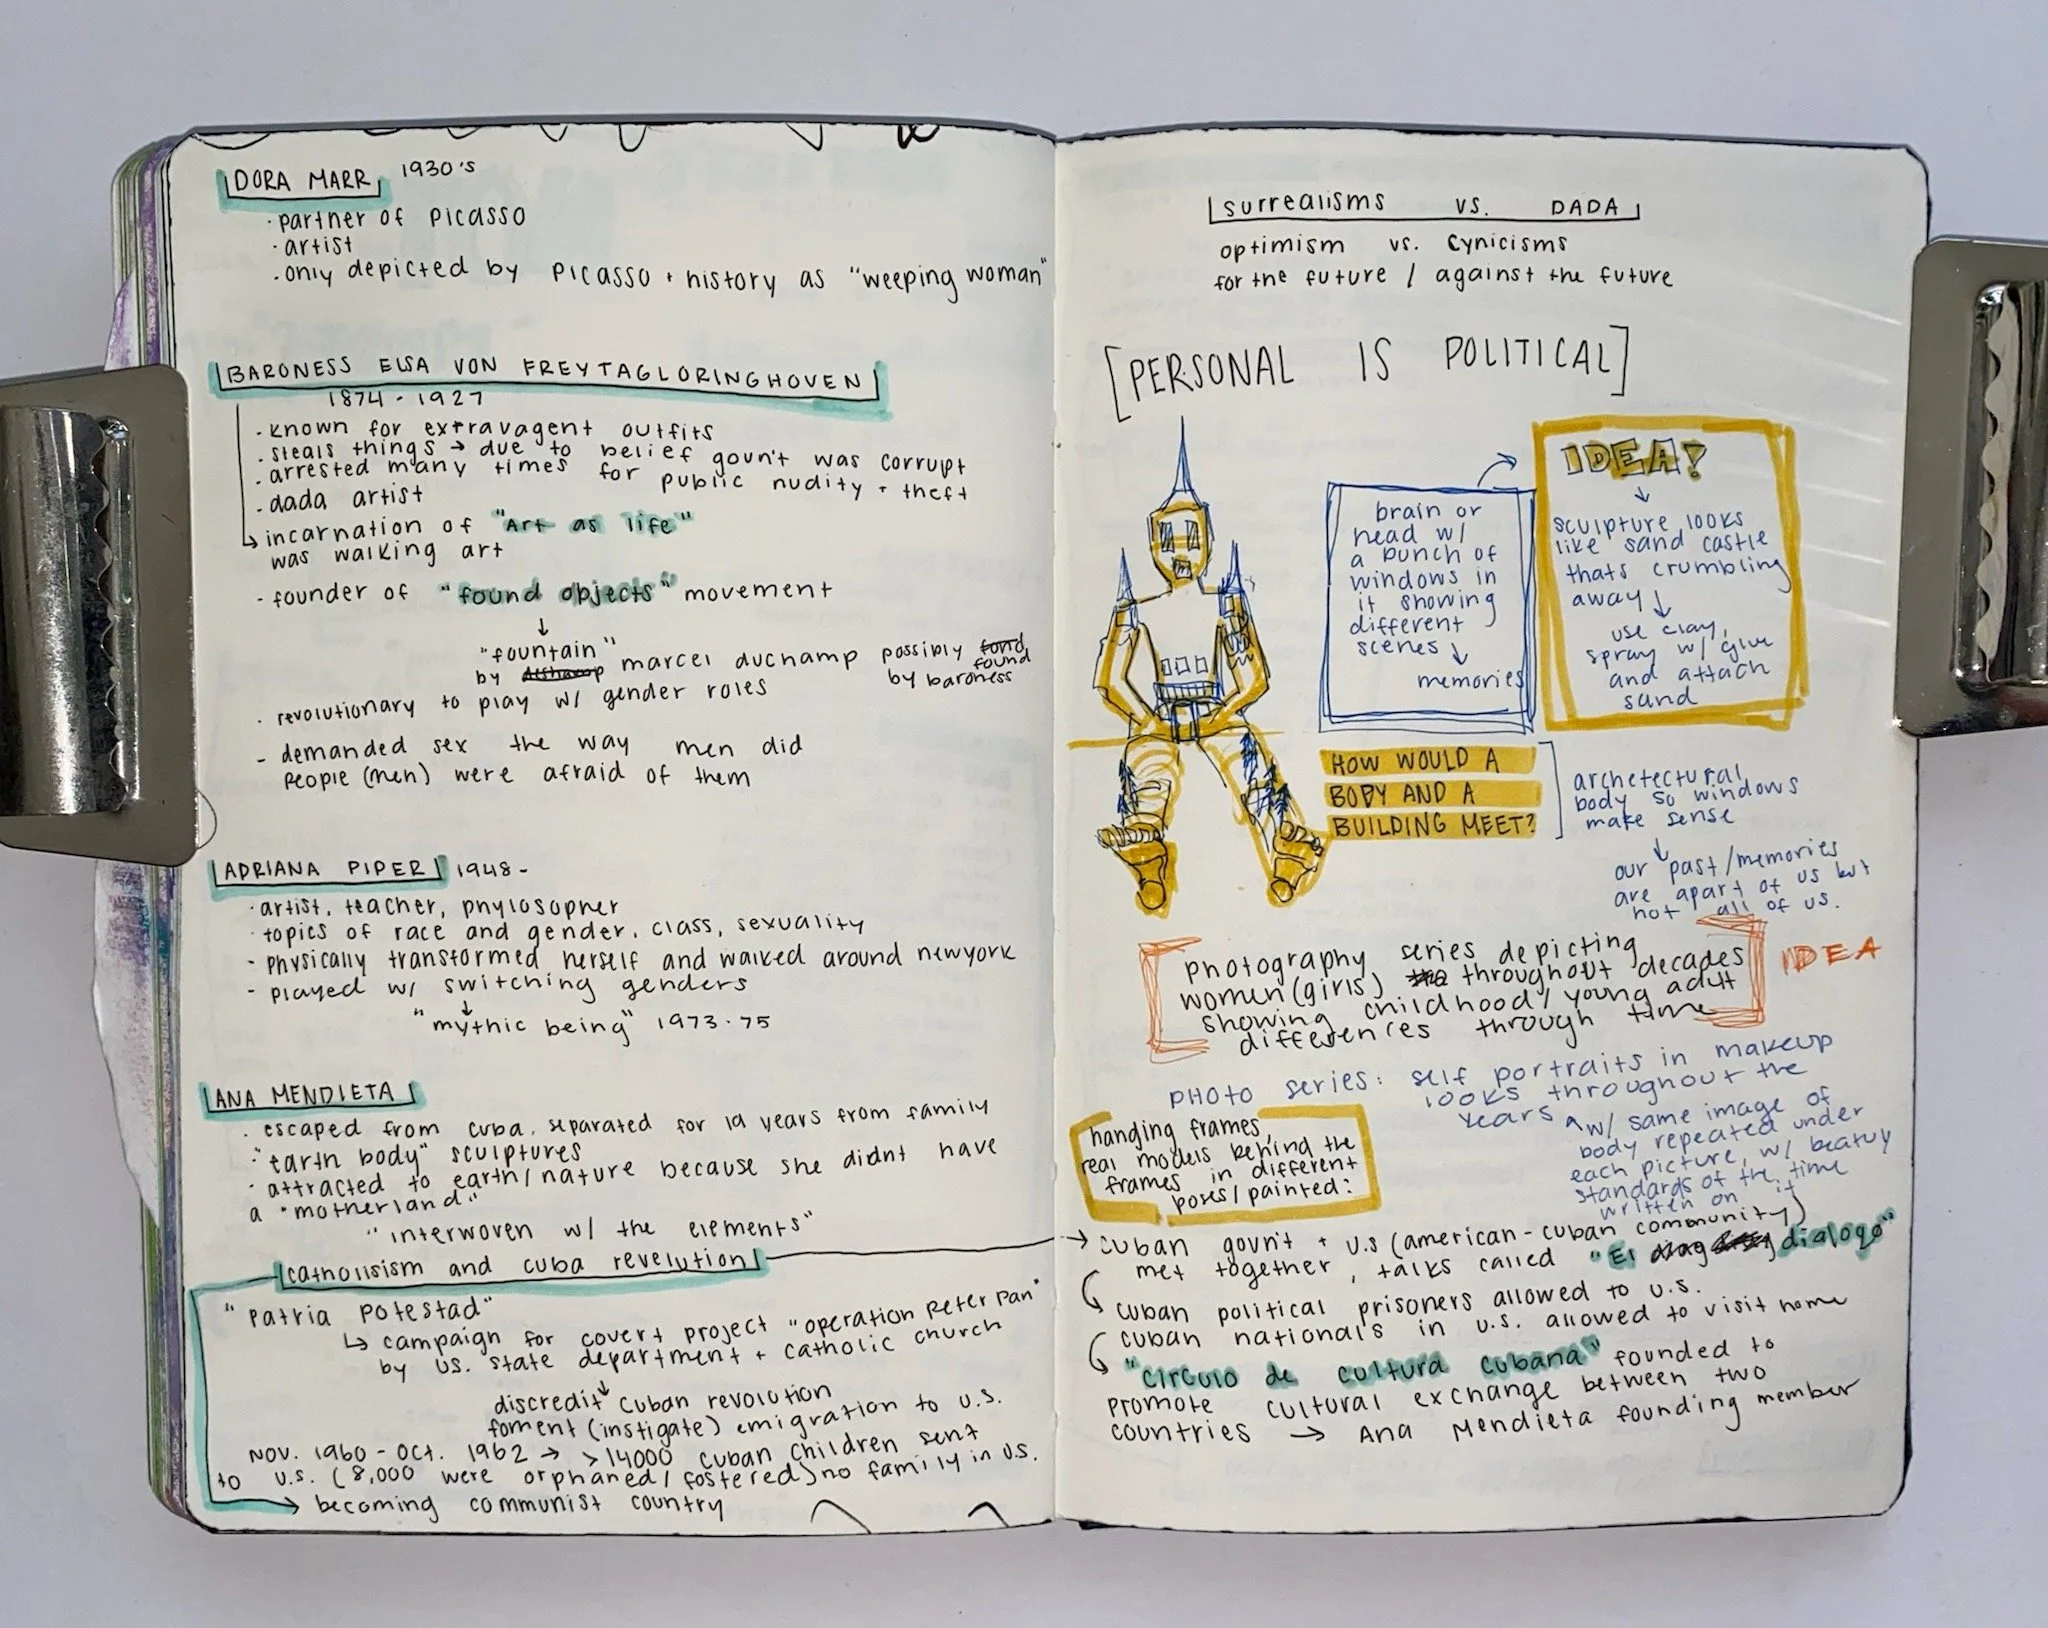 DORA MARR 1930's
· partner of Picasso
· artist
· only depicted by Picasso + history as "weeping woman"
BARONESS ELSA VON FREYTAGLORINGHOVEN
1874 - 1927
· known for extravagent outfits
· steals things → due to belief govn't was corrupt
· arrested many times for public nudity + theft
· dada artist
↳ incarnation of "Art as life"
was walking art
- founder of "found objects" movement
↓
"fountain"
by marcel duchamp possibly found
by baroness
· revolutionary to play w/ gender roles
- demanded sex the way men did
people (men) were afraid of them
ADRIANA PIPER 1948 -
· artist, teacher, phylosopher
· topics of race and gender, class, sexuality
- physically transformed herself and walked around newyork
- played w/ switching genders
↓
"mythic being" 1973-75
ANA MENDIETA
· escaped from cuba, separated for 19 years from family
· "earth body" sculptures
· attracted to earth/nature because she didnt have
a "motherland"
"interwoven w/ the elements"
catholisism and cuba revelution
"Patria Potestad"
↳ campaign for covert project "operation Peter Pan"
by US. state department + catholic church
↓
discredit cuban revolution
foment (instigate) emigration to U.S.
NOV. 1960 - OCT. 1962 → >14000 cuban children sent
to U.S. (8,000 were orphaned/fostered) no family in U.S.
→ becoming communist country
surrealisms vs. DADA
optimism vs. cynicisms
for the future / against the future
[PERSONAL IS POLITICAL]
brain or
head w/
a bunch of
windows in
it showing
different
scenes ↓
memories
IDEA!
↓
sculpture looks
like sand castle
thats crumbling
away ↓
use clay,
spray w/ glue
and attach
sand
HOW WOULD A
BODY AND A
BUILDING MEET?
archetectural
body so windows
make sense
↓
our past/memories
are apart of us but
not all of us.
photography series depicting
women (girls) throughout decades
showing childhood/young adult
differences through time
IDEA
PHOTO series: self portraits in makeup
looks throughout the
years ^ w/ same image of
body repeated under
each picture, w/ beatuy
standards of the time
written on it
hanging frames,
real models behind the
frames in different
poses/painted?
→ cuban govn't + U.S (american-cuban community)
met together, talks called "El dialogo"
cuban political prisoners allowed to U.S.
cuban nationals in U.S. allowed to visit home
"circulo de cultura cubana" founded to
promote cultural exchange between two
countries → Ana Mendieta founding member